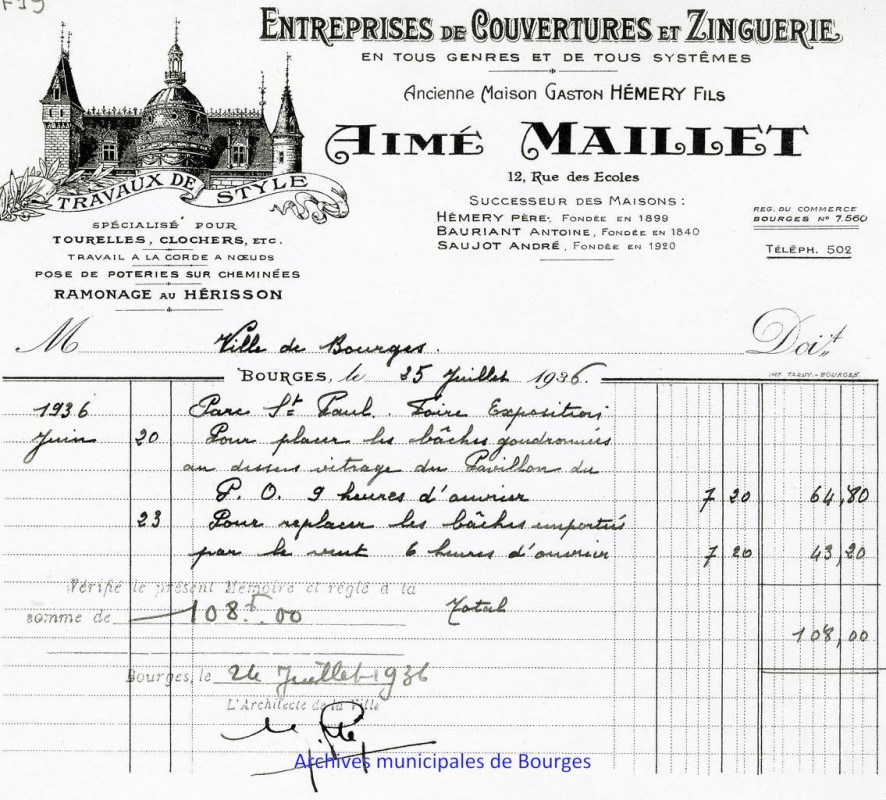 F19
ENTREPRISES DE COUVERTURES ET ZINGUERIE
EN TOUS GENRES ET DE TOUS SYSTÈMES
Ancienne Maison GASTON HÉMERY FILS
AIMÉ MAILLET
12, Rue des Ecoles
TRAVAUX DE STYLE
SPÉCIALISÉ POUR
TOURELLES, CLOCHERS, ETC.
TRAVAIL A LA CORDE A NŒUDS
POSE DE POTERIES SUR CHEMINÉES
RAMONAGE AU HÉRISSON
SUCCESSEUR DES MAISONS :
HÉMERY PÈRE, FONDÉE EN 1899
BAURIANT ANTOINE, FONDÉE EN 1840
SAUJOT ANDRÉ, FONDÉE EN 1920
REG. DU COMMERCE
BOURGES Nº 7.560
TÉLÉPH. 502
M Ville de Bourges. Doit
BOURGES, le 25 Juillet 1936.
IMP. TARDY.-BOURGES.
1936 Parc St Paul. Foire Exposition
Juin 20 Pour placer les bâches goudronnées
au dessus vitrage du Pavillon du
P. O. 9 heures d'ouvrier 7 20 64,80
23 Pour replacer les bâches emportés
par le vent 6 heures d'ouvrier 7 20 43,20
Vérifié le présent Mémoire et réglé à la
somme de 108f.00 Total
108,00
Bourges, le 24 Juillet 1936
L'Architecte de la Ville
Archives municipales de Bourges